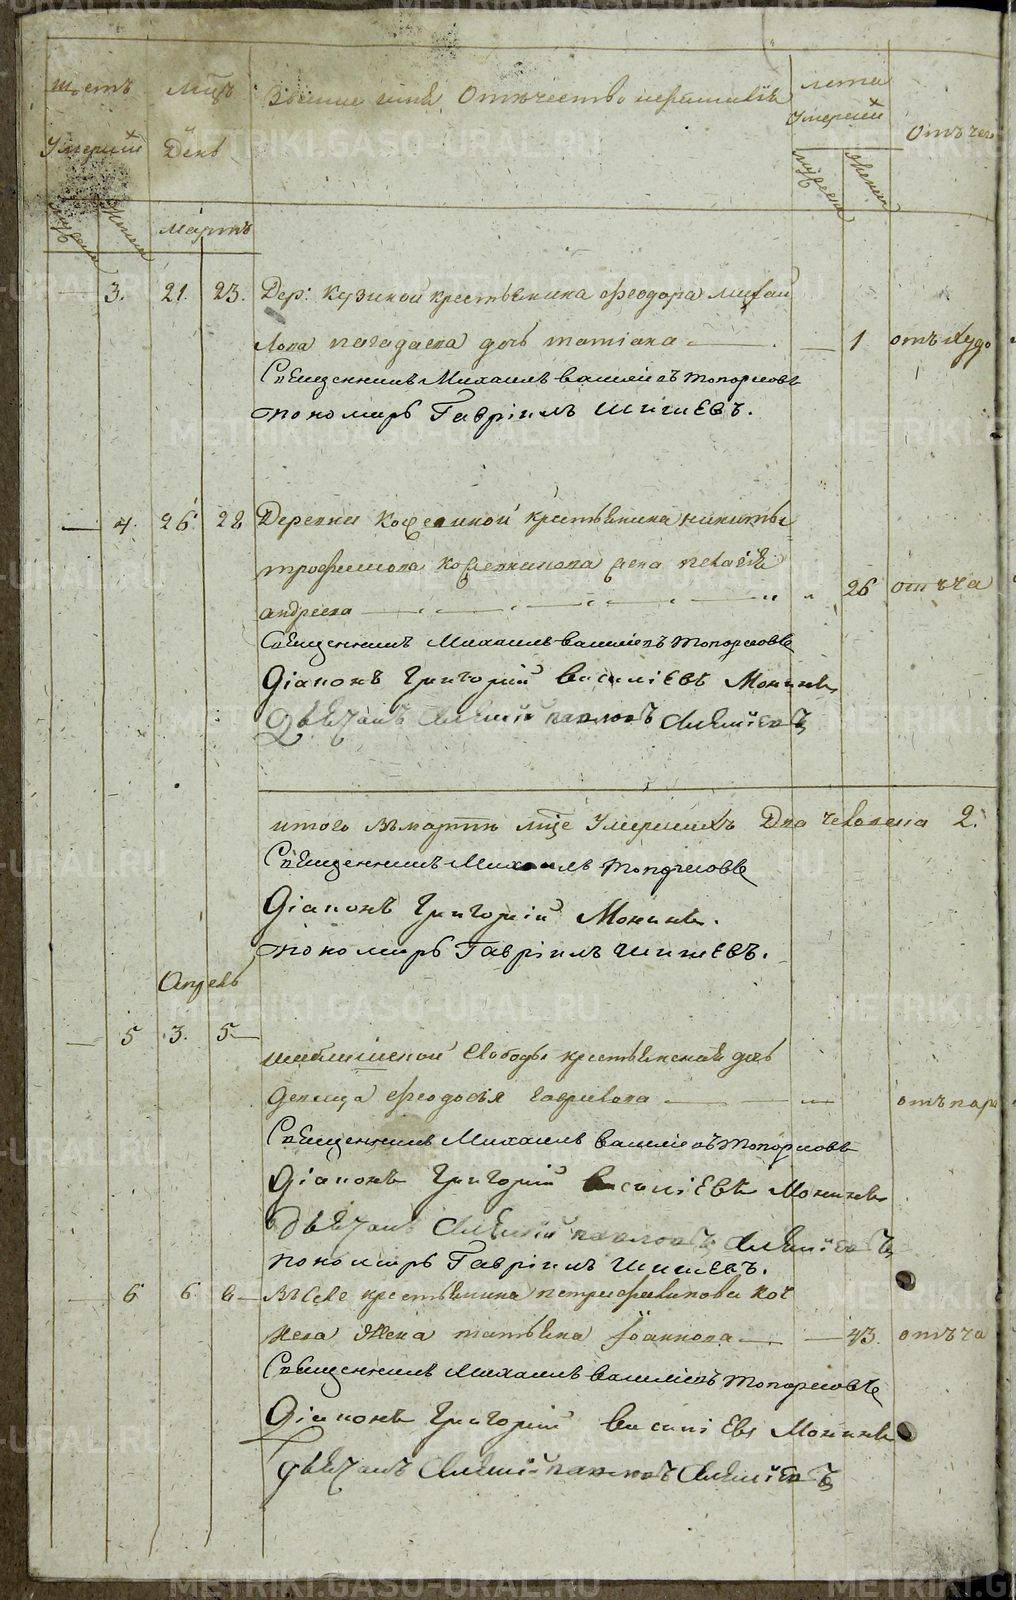 щетъ мцъ Звание имя Отечество и фамилiя лета
Умерших Умерших
День Отъ чего
мужеска женска мужеска женска
мартъ
3. 21. 23. Дер: Кузиной крестьянина феодора михай
лова дочь татiана 1 отъ худо
Священникъ Михаилъ Василiевъ Топорковъ
пономарь Гаврiилъ Шишевъ.
4. 26. 28 Деревни крестьянина никиты
трофимова жена пелагiя
андреева 26 отъ ча
Священникъ Михаилъ Василiевъ Топорковъ
Дiаконъ Григорiй Василiевъ Мокинъ
Дьячокъ Алексiй павловъ Алексiевъ
итого въ мартѣ мце Умершихъ Два человека 2.
Священникъ Михаилъ Топорковъ
Дiаконъ Григорiй Мокинъ.
пономарь Гаврiилъ Шишевъ.
Апрель
5 3. 5
Свободы крестьянская дочь
девица феодосья гаврилова отъ пара
Священникъ Михаилъ Василiевъ Топорковъ
Дiаконъ Григорiй Василiевъ Мокинъ
Дьячокъ Алексiй павловъ Алексiевъ
пономарь Гаврiилъ Шишевъ.
6 6 8 крестьянина петра филипова коч
нева жена татьяна Iоаннова 43. отъ ча
Священникъ Михаилъ Василiевъ Топорковъ
Дiаконъ Григорiй Василiевъ Мокинъ
Дьячокъ Алексiй павловъ Алексiевъ
METRIKI.GASO-URAL.RU